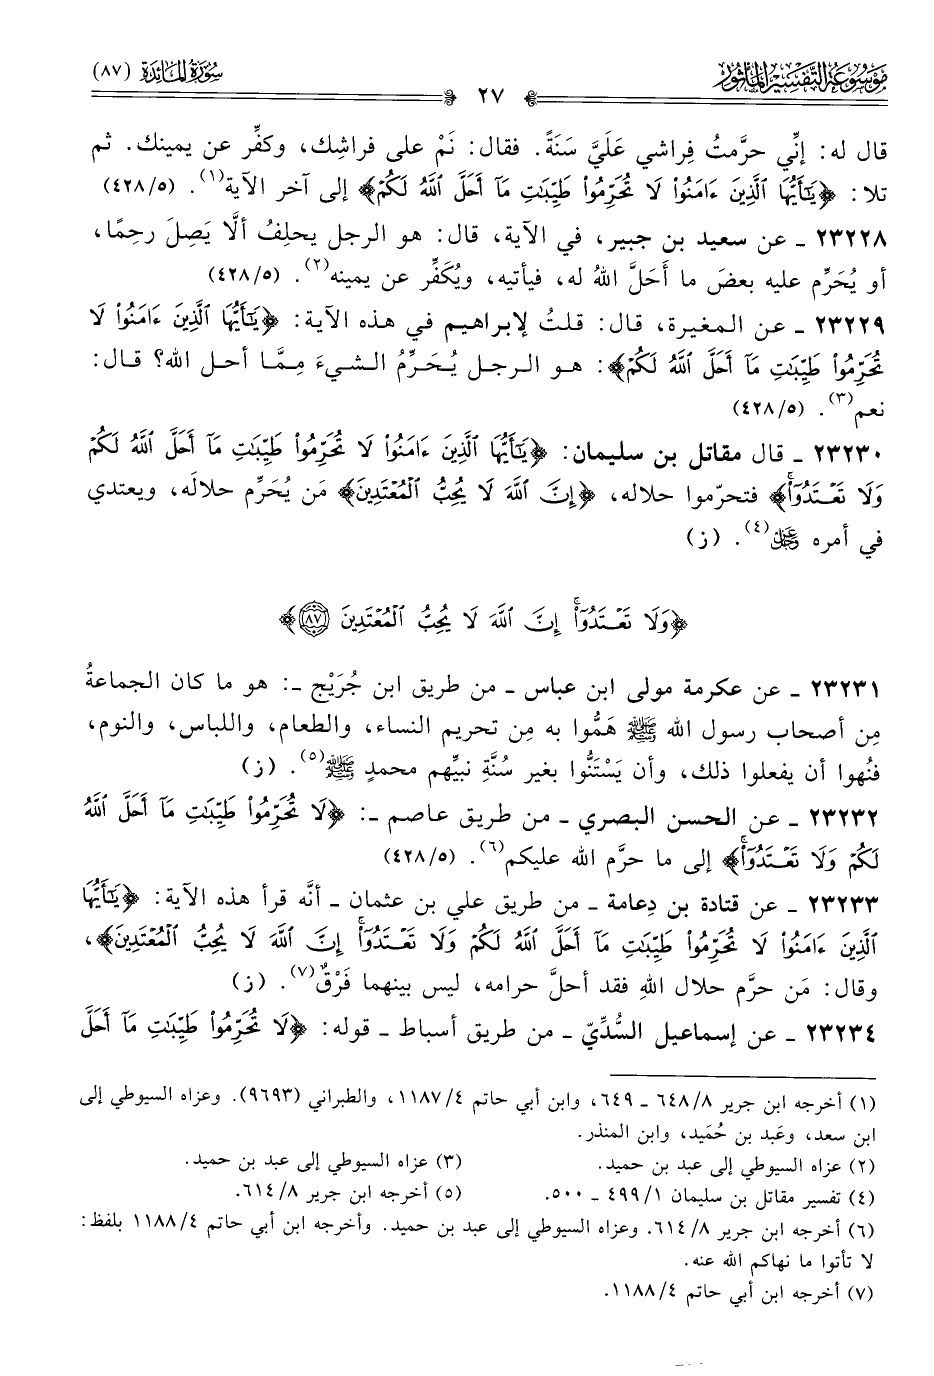 مَوْسُوعَةُ التَّفْسِيرِ المَأْثُورِ
٢٧
سُورَةُ المَائِدَة (٨٧)
قال له: إنِّي حرَّمتُ فِراشي عَلَيَّ سَنَةً. فقال: نَمْ على فراشِك، وكفِّر عن يمينك. ثم
تلا: ﴿يَٰٓأَيُّهَا ٱلَّذِينَ ءَامَنُوا۟ لَا تُحَرِّمُوا۟ طَيِّبَٰتِ مَآ أَحَلَّ ٱللَّهُ لَكُمْ﴾ إلى آخر الآية(١). (٤٢٨/٥)
٢٣٢٢٨ ـ عن سعيد بن جبير، في الآية، قال: هو الرجل يحلِفُ ألَّا يَصِلَ رحِمًا،
أو يُحَرِّم عليه بعضَ ما أَحَلَّ اللهُ له، فيأتيه، ويُكَفِّر عن يمينه(٢). (٤٢٨/٥)
٢٣٢٢٩ ـ عن المغيرة، قال: قلتُ لإبراهيم في هذه الآية: ﴿يَٰٓأَيُّهَا ٱلَّذِينَ ءَامَنُوا۟ لَا
تُحَرِّمُوا۟ طَيِّبَٰتِ مَآ أَحَلَّ ٱللَّهُ لَكُمْ﴾: هو الرجل يُحَرِّمُ الشيءَ مِمَّا أحل الله؟ قال:
نعم(٣). (٤٢٨/٥)
٢٣٢٣٠ ـ قال مقاتل بن سليمان: ﴿يَٰٓأَيُّهَا ٱلَّذِينَ ءَامَنُوا۟ لَا تُحَرِّمُوا۟ طَيِّبَٰتِ مَآ أَحَلَّ ٱللَّهُ لَكُمْ
وَلَا تَعْتَدُوٓا۟ۚ﴾ فتحرّموا حلاله، ﴿إِنَّ ٱللَّهَ لَا يُحِبُّ ٱلْمُعْتَدِينَ﴾ مَن يُحَرِّم حلالَه، ويعتدي
في أمره ﷿(٤). (ز)
﴿وَلَا تَعْتَدُوٓا۟ۚ إِنَّ ٱللَّهَ لَا يُحِبُّ ٱلْمُعْتَدِينَ ٨٧﴾
٢٣٢٣١ ـ عن عكرمة مولى ابن عباس ـ من طريق ابن جُرَيْج ـ: هو ما كان الجماعةُ
مِن أصحاب رسول الله ﷺ هَمُّوا به مِن تحريم النساء، والطعام، واللباس، والنوم،
فنُهوا أن يفعلوا ذلك، وأن يَسْتَنُّوا بغير سُنَّةِ نبيِّهم محمدٍ ﷺ(٥). (ز)
٢٣٢٣٢ ـ عن الحسن البصري ـ من طريق عاصم ـ: ﴿لَا تُحَرِّمُوا۟ طَيِّبَٰتِ مَآ أَحَلَّ ٱللَّهُ
لَكُمْ وَلَا تَعْتَدُوٓا۟ۚ﴾ إلى ما حرَّم الله عليكم(٦). (٤٢٨/٥)
٢٣٢٣٣ ـ عن قتادة بن دِعامة ـ من طريق علي بن عثمان ـ أنَّه قرأ هذه الآية: ﴿يَٰٓأَيُّهَا
ٱلَّذِينَ ءَامَنُوا۟ لَا تُحَرِّمُوا۟ طَيِّبَٰتِ مَآ أَحَلَّ ٱللَّهُ لَكُمْ وَلَا تَعْتَدُوٓا۟ۚ إِنَّ ٱللَّهَ لَا يُحِبُّ ٱلْمُعْتَدِينَ﴾،
وقال: مَن حرَّم حلال اللهِ فقد أحلَّ حرامه، ليس بينهما فَرْقٌ(٧). (ز)
٢٣٢٣٤ ـ عن إسماعيل السُّدِّيّ ـ من طريق أسباط ـ قوله: ﴿لَا تُحَرِّمُوا۟ طَيِّبَٰتِ مَآ أَحَلَّ
(١) أخرجه ابن جرير ٦٤٨/٨ ـ ٦٤٩، وابن أبي حاتم ١١٨٧/٤، والطبراني (٩٦٩٣). وعزاه السيوطي إلى
ابن سعد، وعَبد بن حُمَيد، وابن المنذر.
(٢) عزاه السيوطي إلى عبد بن حميد. (٣) عزاه السيوطي إلى عبد بن حميد.
(٤) تفسير مقاتل بن سليمان ٤٩٩/١ ـ ٥٠٠. (٥) أخرجه ابن جرير ٦١٤/٨.
(٦) أخرجه ابن جرير ٦١٤/٨. وعزاه السيوطي إلى عبد بن حميد. وأخرجه ابن أبي حاتم ١١٨٨/٤ بلفظ:
لا تأتوا ما نهاكم الله عنه.
(٧) أخرجه ابن أبي حاتم ١١٨٨/٤.